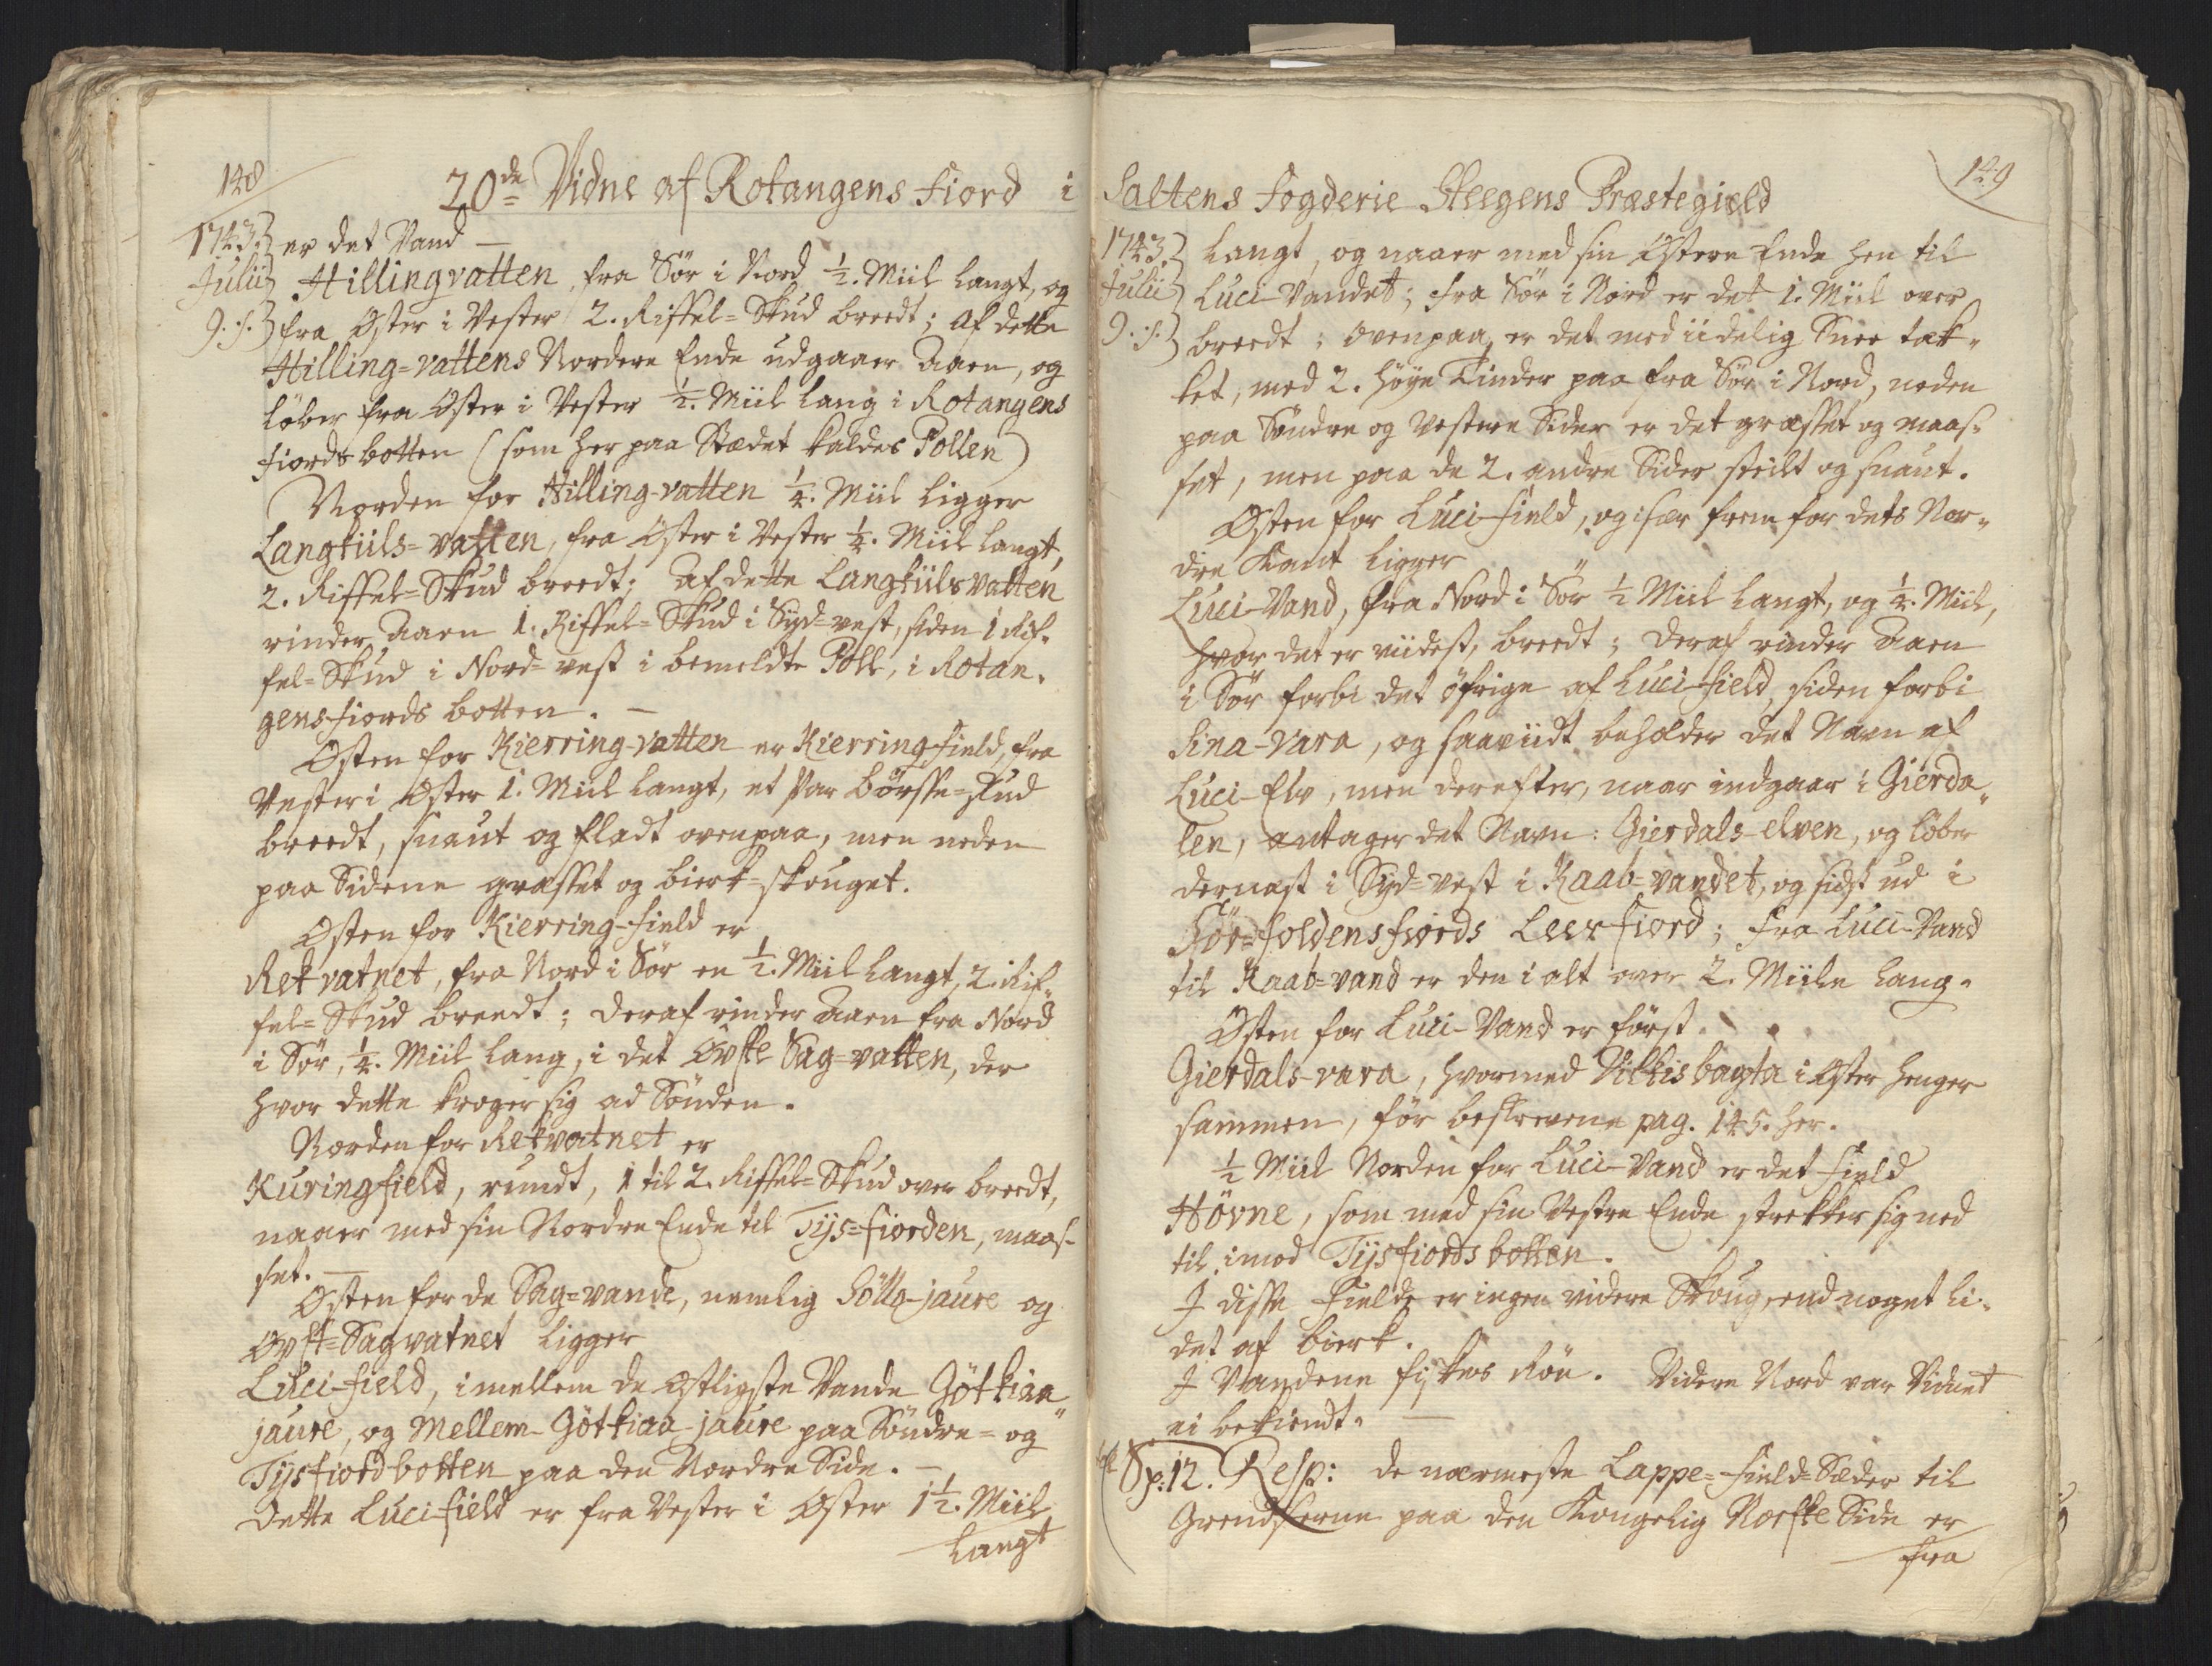 148
20de Vidne af Rotangens Fiord i
1743. er det Vand —
Julii Hillingvatten, fra Sør i Nord ½. Miil langt, og
9. s. fra Øster i Vester 2. Riffel-Skud breedt; Af dette
Hilling-vattens Nordere Ende udgaaer Aaen, og
løber fra Øster i Vester ½. Miil lang i Rotangens
fiords botten (som her paa Stædet kaldes Pollen)
Norden for Hilling-vatten ¼. Miil ligger
Langkiils-vatten, fra Øster i Vester ¼. Miil langt,
2. Riffel-Skud breedt; Af dette Langkiilsvatten
rinder Aaen 1. Riffel-Skud i Syd-vest, siden 1 Rif-
fel-Skud i Nord-vest i bemeldte Poll, i Rotan-
gensfiords botten. —
Østen for Kierring-vatten er Kierringfield, fra
Vester i Øster 1. Miil langt, et Par Børsse-skud
breedt, snaut og fladt ovenpaa, men neden
paa Sidene græsset og bierk-skouget.
Østen for Kierring-field er
Rekvatnet, fra Nord i Sør en ½. Miil langt, 2. Rif-
fel-Skud breedt; deraf rinder Aaen fra Nord
i Sør, ¼. Miil lang, i det Øvste Sag-vatten, der
hvor dette kroger sig ad Sønden.
Norden for Rekvatnet er
Kuringfield, rundt, 1 til 2. Riffel-Skud over breedt,
naaer med sin Nordre Ende til Tijs-fiorden, maas-
set. —
Østen for de Sag-vande, nemlig Gøllo-jaure og
Øvst-Sagvatnet ligger
Luci-field, imellem de Østligste Vande Gøtkiaa-
jaure, og Mellem-Gøtkiaa-jaure paa Søndre- og
Tijsfiordbotten paa den Nordre Side. —
Dette Luci-field er fra Vester i Øster 1½. Miil
langt
149
Saltens Fogderie Steegens Præstegield
1743. langt, og naaer med sin Østere Ende hen til
Julii Luci-Vandet; fra Sør i Nord er det 1. Miil over
9. s. breedt; ovenpaa er det med iidelig Snee tæk-
ket, med 2. høye Tinder paa fra Sør i Nord, neden
paa Søndre og Vestere Sider er det græsset og maas-
set, men paa de 2. andre Sider steilt og snaut.
Østen for Luci-field, og især frem for dets Nor-
dre Kant ligger
Luci-Vand, fra Nord i Sør ½ Miil langt, og ¼. Miil,
hvor det er viidest, breedt; deraf rinder Aaen
i Sør forbi det øfrige af Luci-field, siden forbi
Sina-vara, og saaviidt beholder det Navn af
Luci-Elv, men derefter, naar indgaar i Gierda-
len, antager det Navn: Gierdals-elven, og løber
dernæst i Syd-vest i Kaab-vandet, og sidst ud i
Sør-foldensfiords Leerfiord; fra Luci-Vand
til Kaab-vand er den i alt over 2. Miile lang.
Østen for Luci-Vand er først.
Gierdals-vara, hvormed Vikkisbagta i Øster henger
sammen, før beskrevene pag. 145. her.
½ Miil Norden for Luci-Vand er det Field
Høvne, som med sin Vestre Ende strekker sig ned
til imod Tijsfiords botten.
I disse Fielde er ingen videre Skoug, end noget li-
det af bierk.
I Vandene fiskes Røe. Videre Nord var Vidnet
ei bekiendt. —
Sp: 12. Resp: de nærmeste Lappe-Field-Sæder til
Grendserne paa den Kongelig Norske Side er
fra